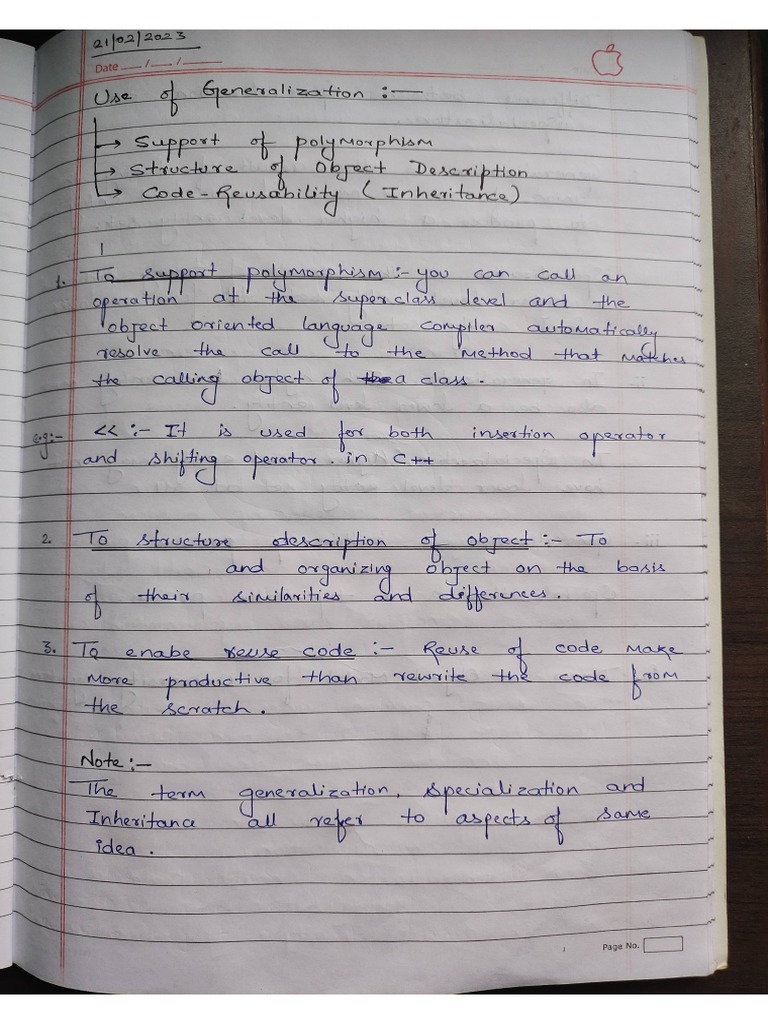 21/02/2023
Date ___/___/___
Use of Generalization :—
→ Support of polymorphism
→ Structure of Object Description
→ Code-Reusability (Inheritance)
1. To support polymorphism :- you can call an
operation at the superclass level and the
object oriented language compiler automatically
resolve the call to the method that matches
the calling object of a class.
e.g:- << :- It is used for both insertion operator
and shifting operator. in C++
2. To structure description of object :- To
and organizing object on the basis
of their similarities and differences.
3. To enabe reuse code :- Reuse of code make
more productive than rewrite the code from
the scratch.
Note :—
The term generalization, specialization and
Inheritance all refer to aspects of same
idea.
Page No.